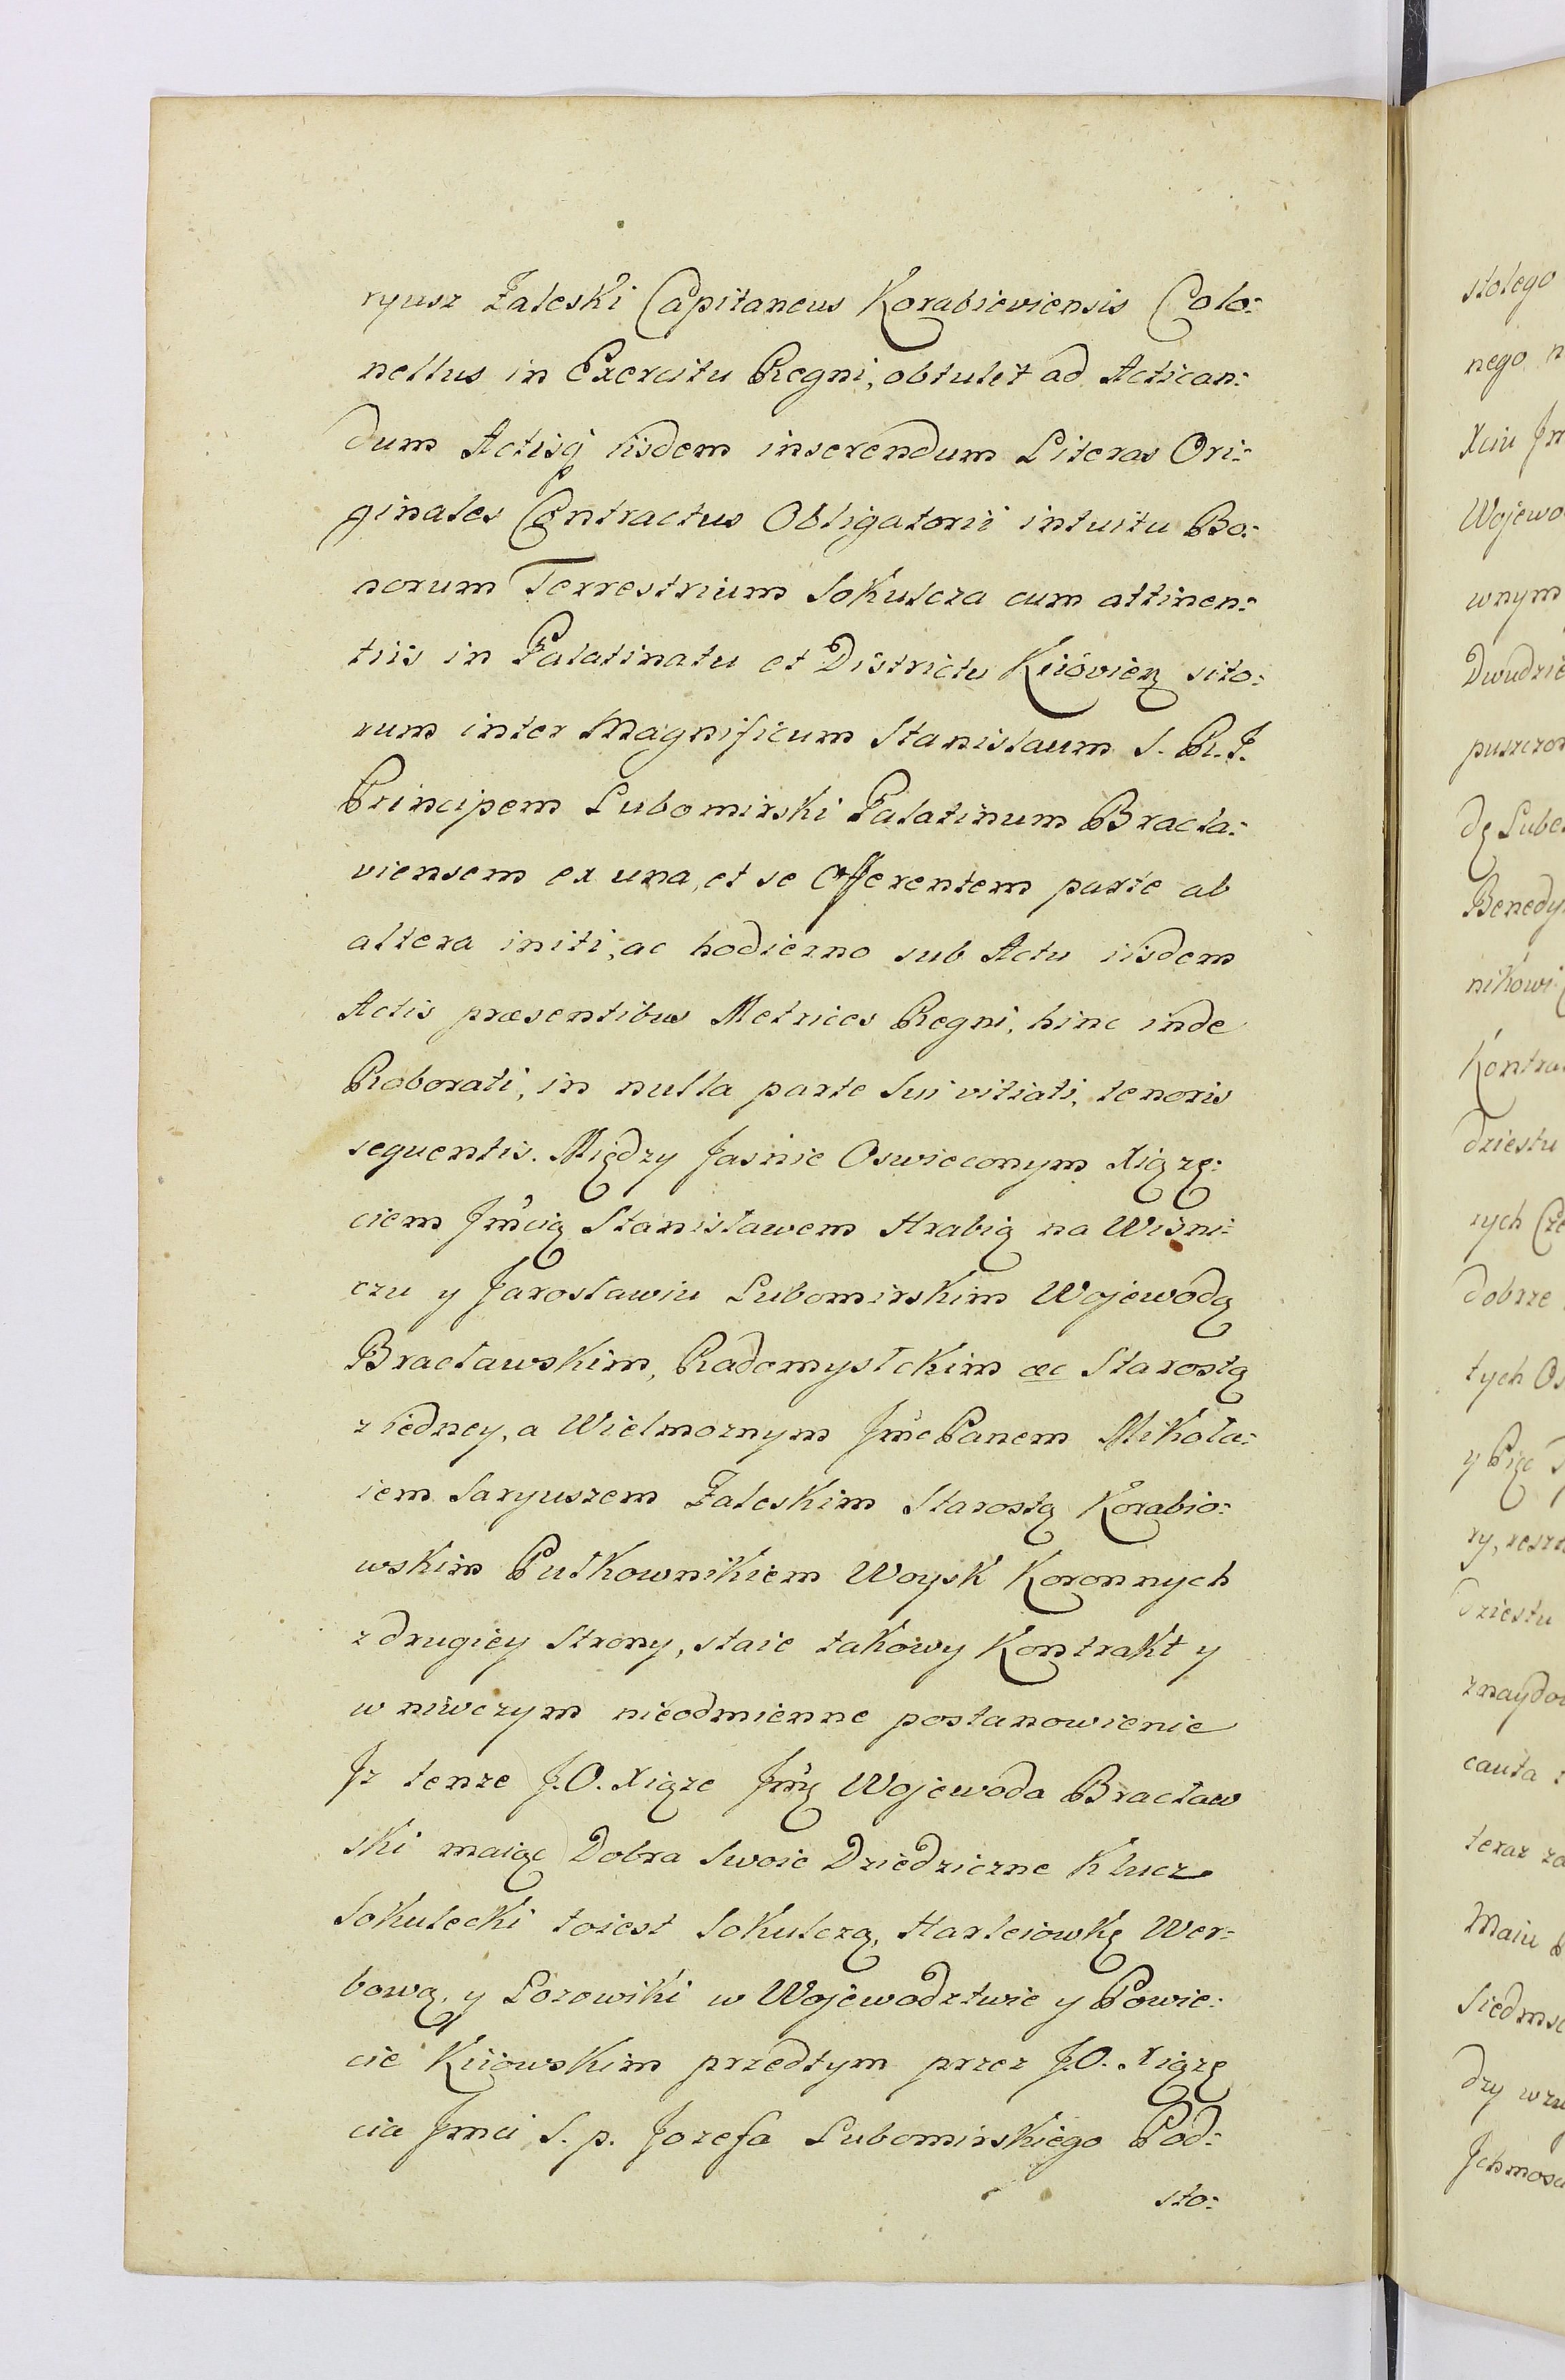 ryusz Zaleski Capitaneus Korabieviensis Colo:
nellus in Exercitu Regni, obtulit ad Actican:
dum Actisq iisdem inserendum Literas Ori:
ginales Contractus Obligatorii intuitu Bo:
norum Terrestrium Sokulcza cum attinen:
tiis in Palatinatu et Districtu Kiiovien sito:
rum inter Magnificum Stanislaum S. R. I.
Principem Lubomirski Palatinum Bracla:
viensem ex una, et se Offerentem parte ab
altera initi, ac hodierno sub Actu iisdem
Actis præsentibus Metrices Regni, hinc inde
Roborati, in nulla parte Sui vitiati, tenoris
sequentis. Między Jasnie Oswieconym Xiązę:
ciem Jm̃cią Stanisławem Hrabią na Wisni:
czu y Jarosławiu Lubomirskim Wojewodą
Bracławskim, Radomyslckim &c Starostą
z iedney, a Wielmoznym Jm̃c Panem Mikoła:
iem Saryuszem Zaleskim Starostą Korabio:
wskim Pułkownikiem Woysk Koronnych
z drugiey Strony, staie takowy Kontrakt y
w niwczym nieodmienne postanowienie
Jz tenze J. O. Xiąze Jm̃ć Wojewoda Bracław
ski maiąc Dobra Swoie Dziedziczne Klucz
Sokulecki toiest Sokulczą, Harleiowkę Wer:
bową, y Lozowiki w Wojewodztwie y Powie:
cie Kiiowskim przedtym przez J. O. Xiązę
cia Jmci S. p. Jozefa Lubomirskiego Pod:
sto:
stolego
nego
Xciu
Wojewo
wnym
puszczon
Benedy
nikowi
Kontra
dziestu
rych
dobrze
tych
dziestu
znaydo
cauta
teraz
Maiu
Siedms
dzy
Jchmosc